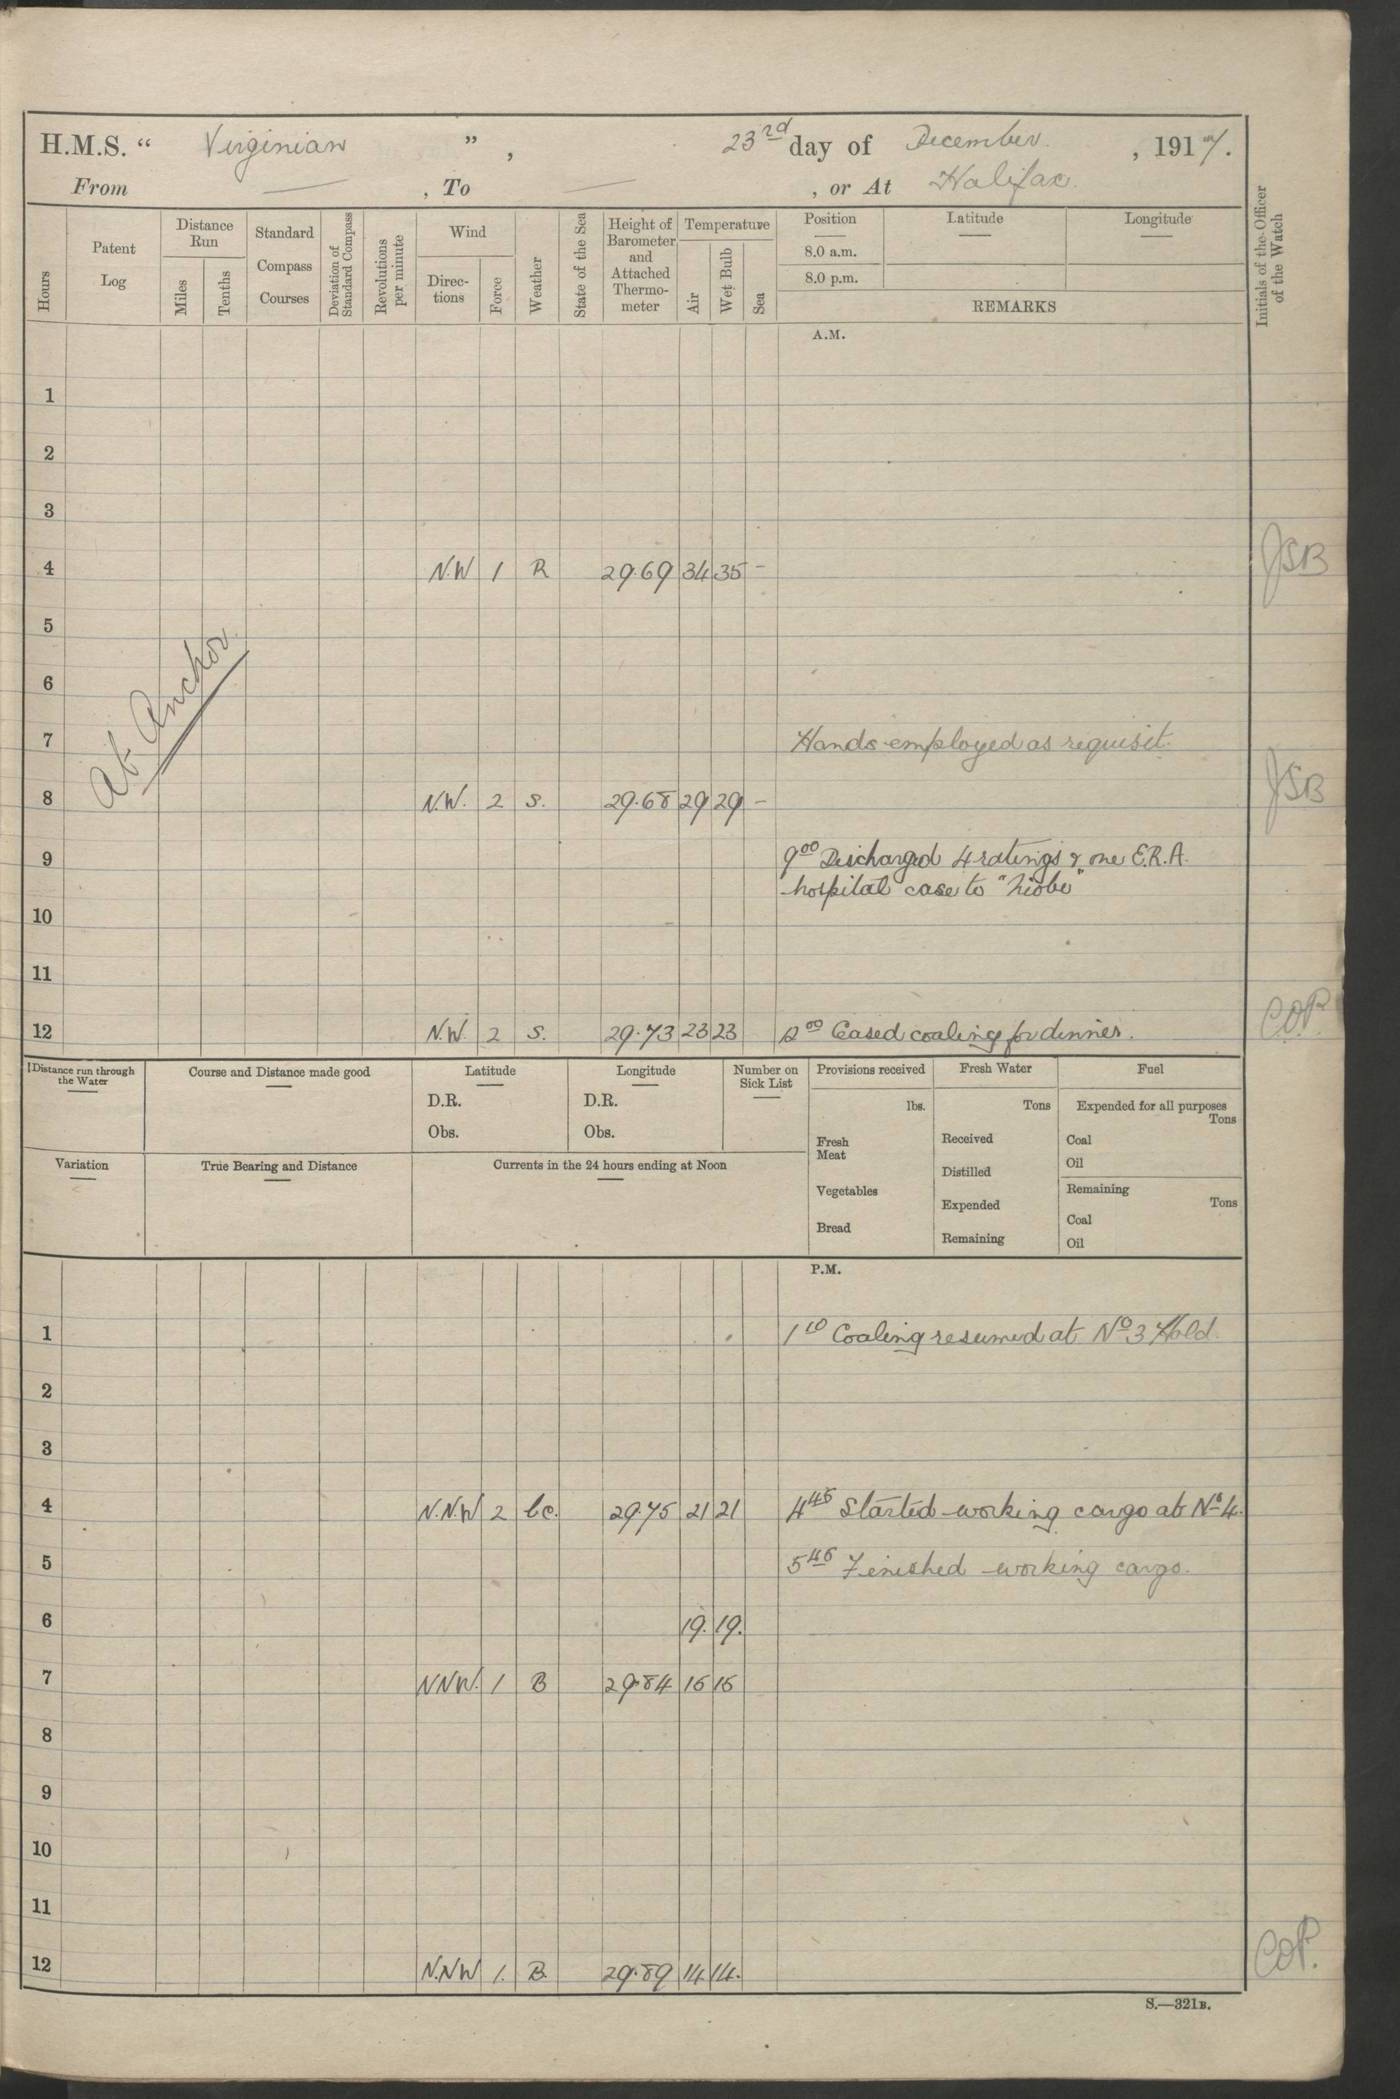 H.M.S. “ Virginian ” , 23rd day of December. , 1917.
From — , To — , or At Halifax.
Hours
Patent Log
Distance Run
Miles
Tenths
Standard Compass Courses
Deviation of Standard Compass
Revolutions per minute
Wind
Direc-tions
Force
Weather
State of the Sea
Height of Barometer and Attached Thermo-meter
Temperature
Air
Wet Bulb
Sea
Position
Latitude
Longitude
8.0 a.m.
8.0 p.m.
REMARKS
Initials of the Officer of the Watch
A.M.
1
2
3
4 N.W 1 R 29.69 34 35 – JSB
5
At Anchor
6
7 Hands employed as requisit.
8 N.W. 2 S. 29.68 29 29 – JSB
9 9 00 Discharged 4 ratings & one E.R.A.
hospital case to "Niobe"
10
11
12 N.W. 2 S. 29.73 23 23 12 00 Ceased coaling for dinner. C.O.P.
Distance run through the Water
Course and Distance made good
Latitude
D.R.
Obs.
Longitude
D.R.
Obs.
Number on Sick List
Provisions received
lbs.
Fresh Meat
Vegetables
Bread
Fresh Water
Tons
Received
Distilled
Expended
Remaining
Fuel
Expended for all purposes
Tons
Coal
Oil
Remaining
Tons
Coal
Oil
Variation
True Bearing and Distance
Currents in the 24 hours ending at Noon
P.M.
1 1 10 Coaling resumed at No 3 Hold.
2
3
4 N.N.W 2 bc. 29.75 21 21 4 45 Started working cargo at No 4.
5 5 45 Finished working cargo.
6 19. 19.
7 NNW. 1 B 29.84 16 16
8
9
10
11
12 N.NW 1. B. 29.89 14 14. COP.
S.—321B.